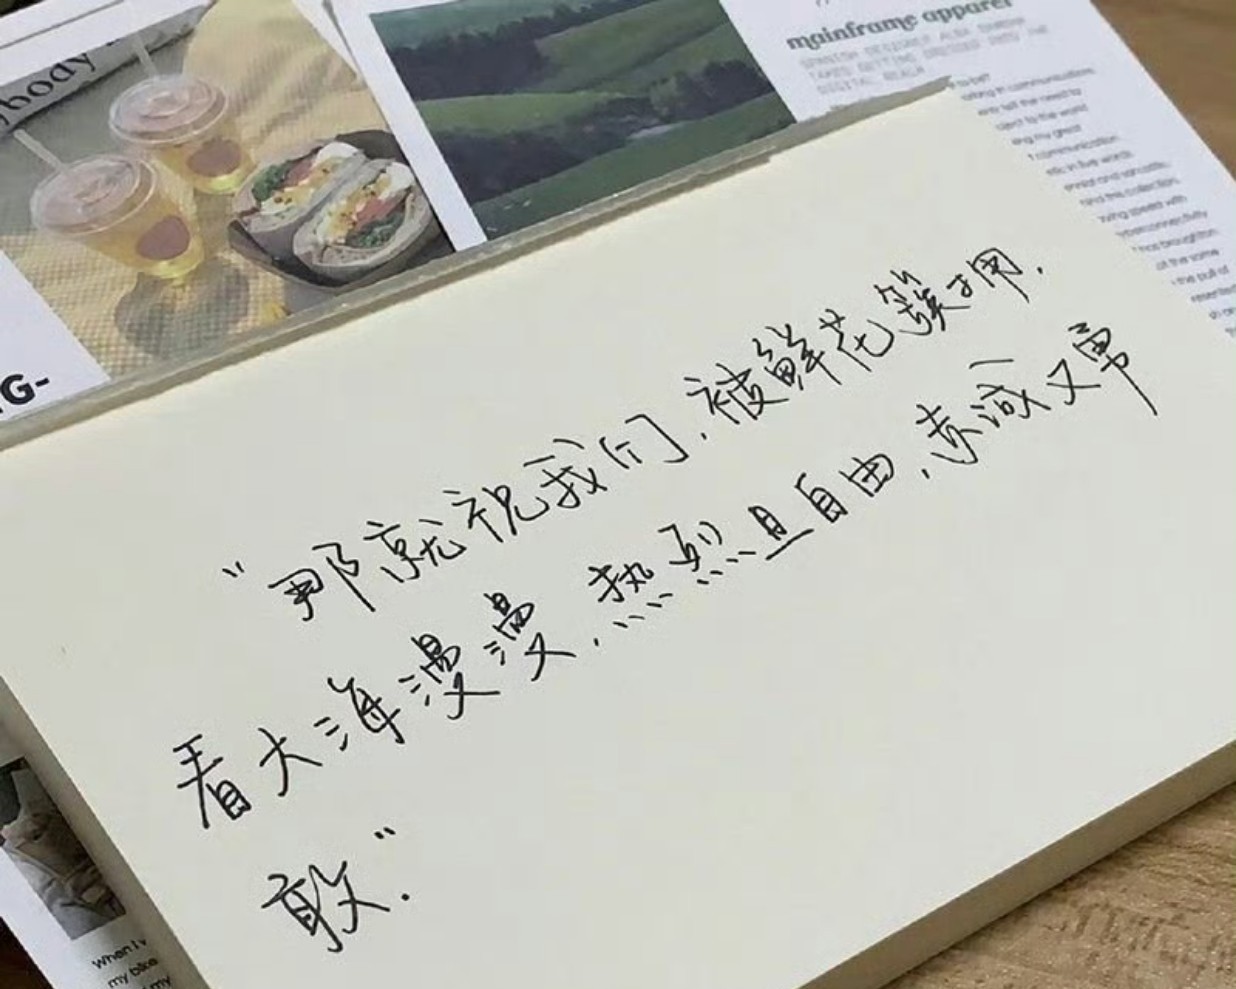 body
mainframe apparel
SPANISH DESIGNER ALBA
TAKES GETTING DRESSED INTO THE
DIGITAL REALM
G-
"那就祝我们,被鲜花簇拥,
看大海漫漫,热烈且自由,赤诚又勇
敢."
When I
my bike
my